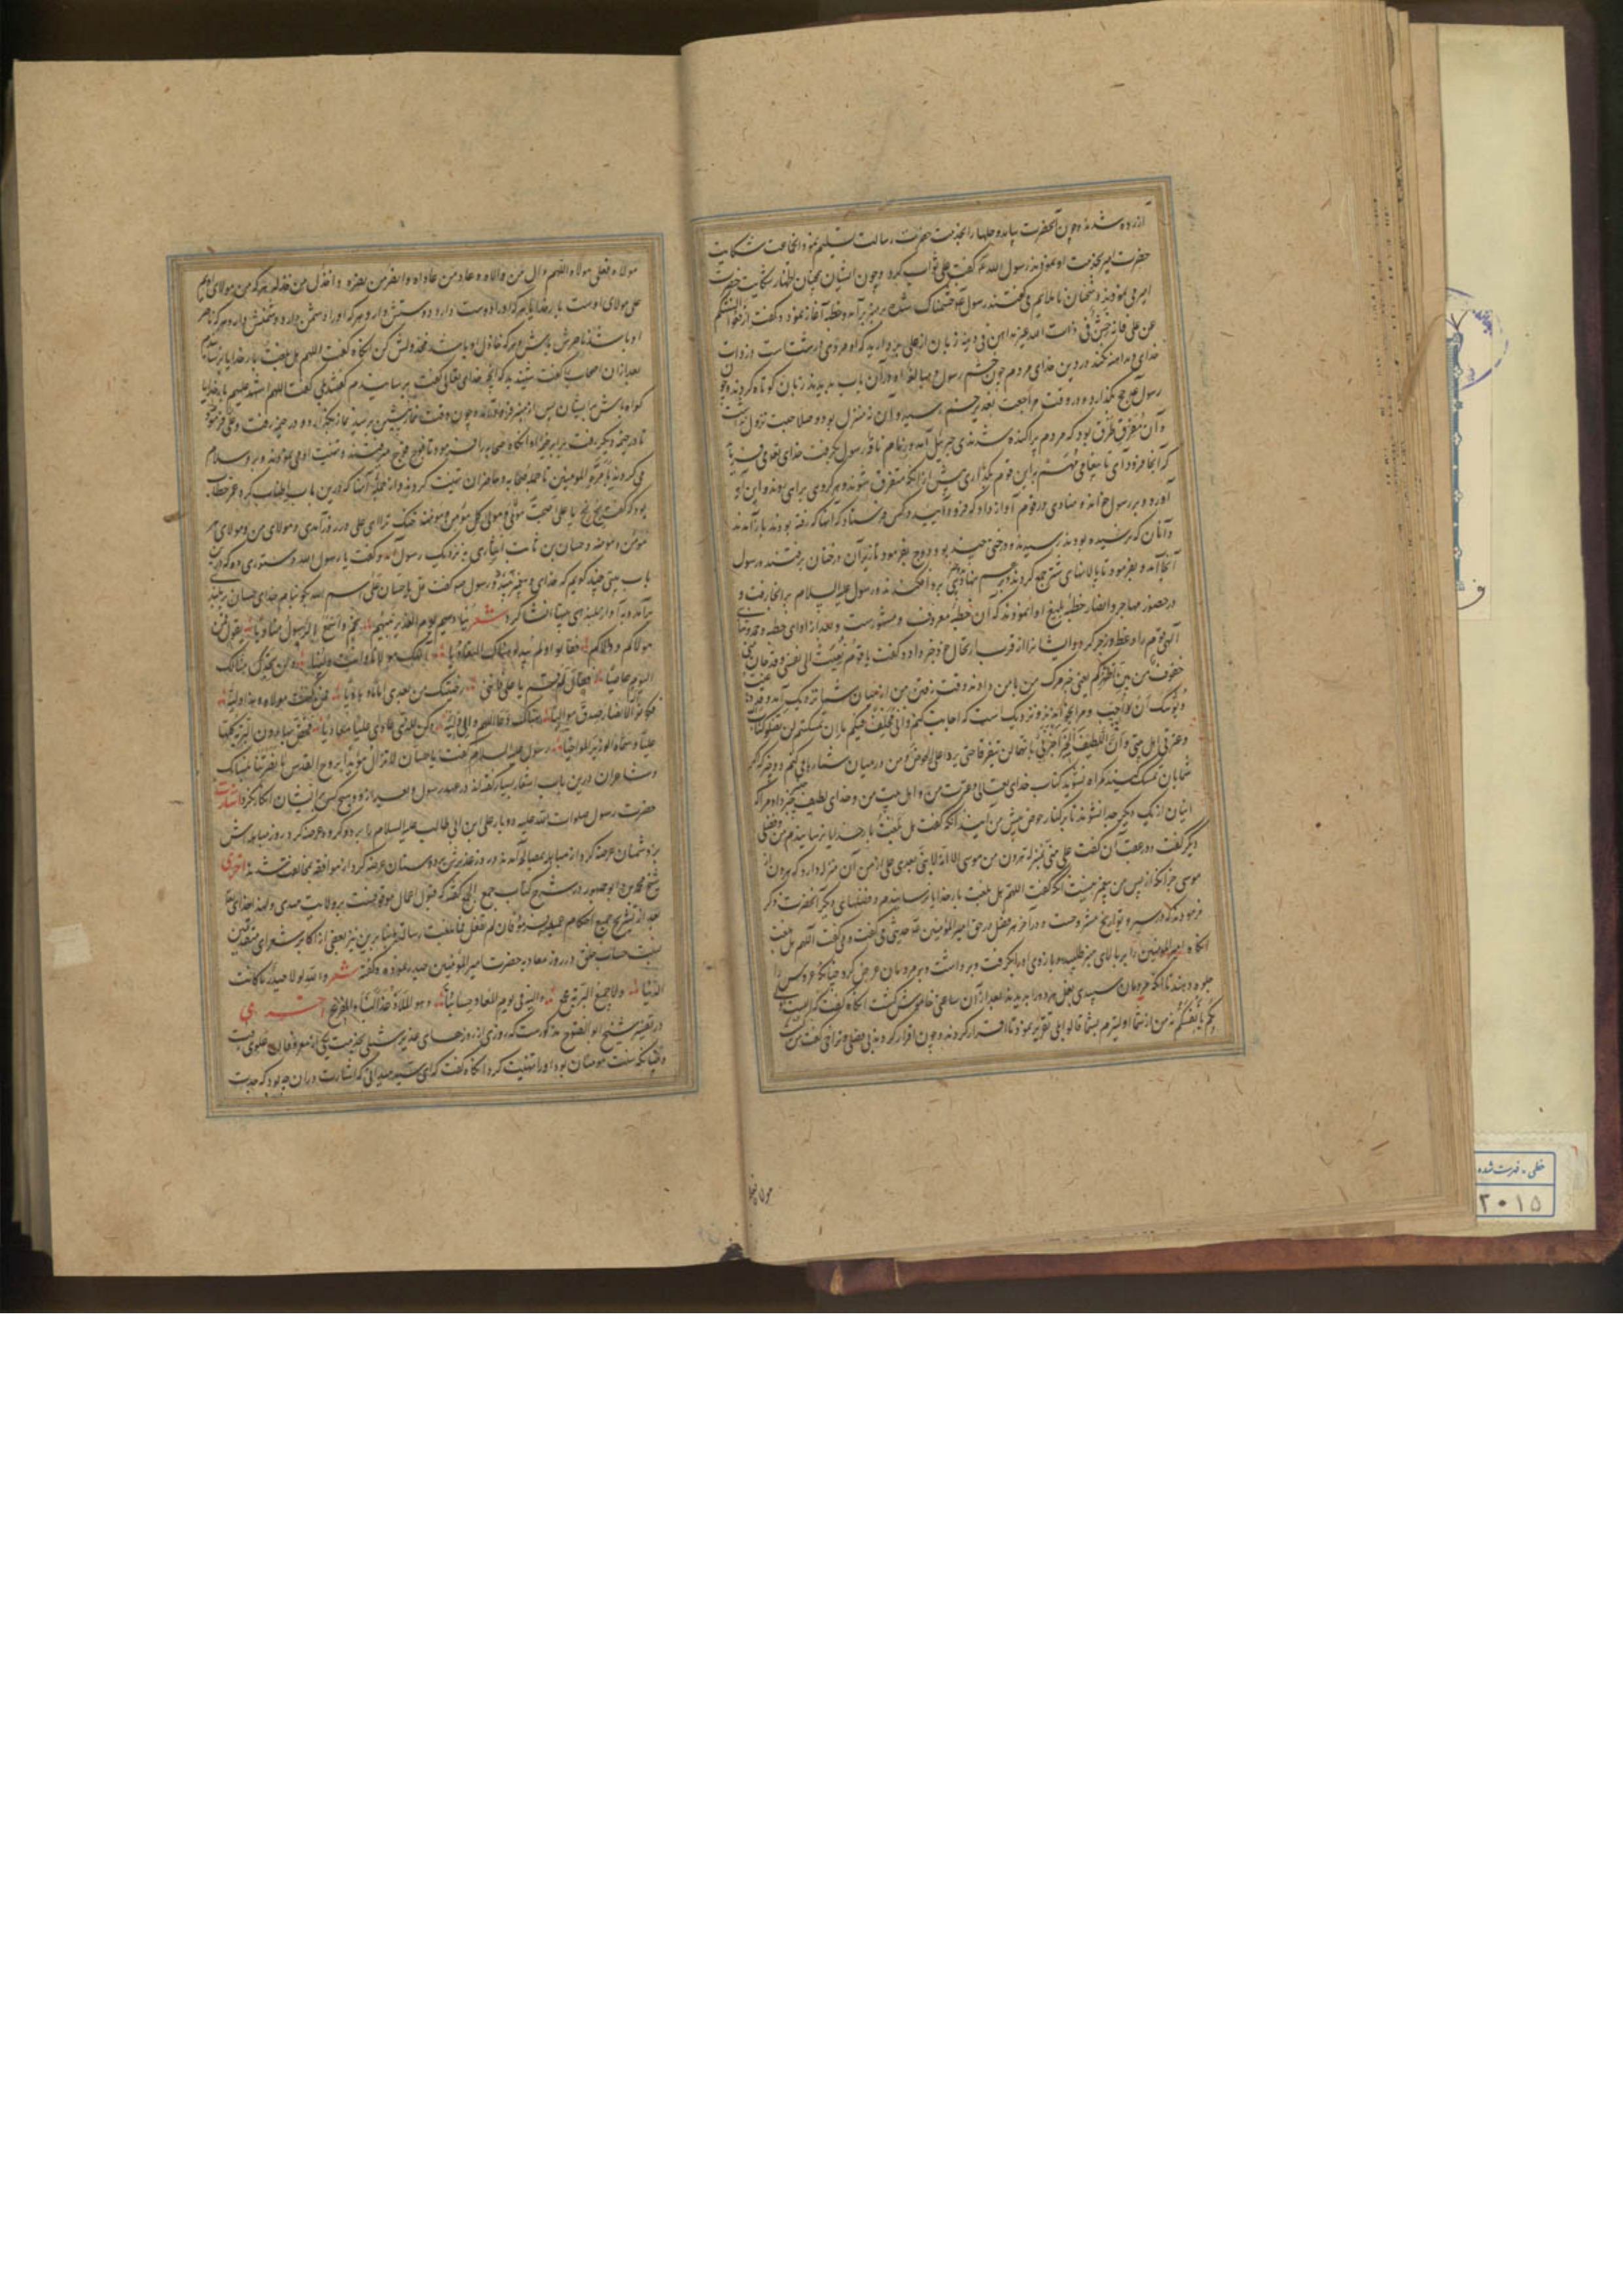 آزرده شدند و چون آنحضرت بیامد و حلها را بخدمت حضرت رسالت تسلیم نمود انجماعت شکایت
حضرت امیر بخدمت او نمودند رسول الله گفت علی ثواب کرده و چون ایشان همچنان اظهار شکایت حضرت
امیر می نمودند و سخنان ناملایم می گفتند رسول خشمناک شده بر منبر برآمد و خطبه آغاز نمود و گفت ارفعوا السنتکم
عن علی فانه خشن فی ذات الله غیر مداهن فی دینه زبان از علی باز دارید که او مردی درشت است در ذات
خدای و مداهنه نکند در دین خدای مردم چون خشم رسول و مبالغه او در آن باب بدیدند زبان کوتاه کردند و چون
رسول حج بگذارد و در وقت مراجعت بغدیر خم رسید و آن نه منزل بود و صلاحیت نزول نداشت
و آن مفرق طرق بود که مردم پراکنده شدندی جبرئیل آمد و زمام ناقه رسول بگرفت
که آنجا فرود آی تا پیغامی مهم برین قوم بگذاری پیش از آنکه متفرق شوند و هر گروهی براهی روند و این آیه
آورد و بر رسول خواند و منادی در قوم آواز داد که فرود آیید و کس فرستاد که آنها که رفته بودند باز آمدند
و آنان که نرسیده بودند رسیدند و درختی چند بود
آنجا آمده بفرمود تا پالانهای شتر جمع کردند و بر هم نهادند رسول علیه السلام بر آنجا رفت و
در حضور مهاجر و انصار خطبه بلیغ ادا نمودند که آن خطبه معروف و مشهور است و بعد از ادای خطبه
خفوف من بین اظهرکم یعنی خبر مرگ من با من دادند و وقت رفتن من از میان شما نزدیک آمد
و یوشک ان ادعی فاجیب و مرا بخوانند و نزدیک است که اجابت کنم و انی مخلف فیکم ما ان تمسکتم لن تضلوا کتاب الله
و عترتی اهل بیتی و ان اللطیف الخبیر اخبرنی بانهما لن یفترقا حتی یردا علی الحوض و من در میان شما رها می کنم دو چیز که اگر
شما بآن تمسک کنید گمراه نشوید کتاب خدای تعالی و عترت من و اهل بیت من و خدای لطیف خبیر خبر داد مرا که
ایشان از یک دیگر جدا نشوند تا بر کنار حوض پیش من آیند آنگه گفت هل بلغت بار خدایا برسانیدم
دیگر گفت و در عقب آن گفت علی منی بمنزله هرون من موسی الا انه لا نبی بعدی علی از من آن منزله دارد که هرون از
موسی جز آنکه از پس من پیغمبر نیست آنگه گفت اللهم هل بلغت بار خدایا برسانیدم و فضلهای دیگر آنحضرت ذکر
فرمودند که در سیر و تواریخ مشروحست و در آخر هر فضل در حق امیر المؤمنین حدیثی می گفت و می گفت اللهم هل بلغت
آنگاه امیر المؤمنین را بر بالای منبر طلبید و بازوی او را بگرفت و برداشت و بر مردمان عرض کرد چنانکه عروس را
جلوه دهند تا آنکه مردمان سپیدی بغل هر دو را بدیدند بعد از آن ساعتی خاموش گشت آنگاه گفت الست اولی
بکم بانفسکم نه من از شما اولیترم بشما قالوا بلی تقریر نمود تا اقرار کردند و چون اقرار کردند
مولاه
مولاه فعلی مولاه اللهم وال من والاه و عاد من عاداه و انصر من نصره و اخذل من خذله هر که من مولای اویم
علی مولای اوست بار خدایا هر که او را دوست دارد دوستش دار و هر که او را دشمن دارد دشمنش دار و هر که ناصر
او باشد ناصرش باش و هر که خاذل او باشد مخذولش کن آنگاه گفت اللهم هل بلغت بار خدایا برسانیدم
بعد از آن اصحاب را گفت شنیدید که آنچه خدای تعالی گفت برسانیدم گفتند بلی گفت اللهم اشهد علیهم بار خدایا
گواه باش بر ایشان پس از منبر فرود آمد و چون وقت نماز پیشین برسید نماز بگذارد و در خیمه رفت و علی را فرمود
تا در خیمه دیگر رفت در برابر خیمه او آنگاه صحابه را فرمود تا فوج فوج میرفتند و تهنیت او می نمودند و بر او سلام
می کردند بامرة المؤمنین تا جمله صحابه و حاضران تهنیت کردند و از جمله آنها که درین باب اطناب کرد عمر خطاب
بود که گفت بخ بخ یا علی اصبحت مولای و مولی کل مؤمن و مؤمنه خنک ترا ای علی در روز آمدی و مولای من و مولای هر
مؤمن و مؤمنه و حسان بن ثابت انصاری به نزدیک رسول آمد و گفت یا رسول الله دستوری ده که درین
باب بیتی چند گویم که خدای و پیغمبر پسندد رسول گفت قل یا حسان علی اسم الله بگو بنام خدای حسان بر بلندی
برآمد و بآواز بلند این ابیات انشا کرد شعر ینادیهم یوم الغدیر نبیهم بخم و اسمع بالرسول منادیا یقول فمن
مولاکم و ولیکم فقالوا و لم یبدوا هناک التعادیا الهک مولانا و انت ولینا و لن تجدن منالک
الیوم عاصیا فقال له قم یا علی فاننی رضیتک من بعدی اماما و هادیا فمن کنت مولاه فهذا ولیه
فکونوا له انصار صدق موالیا هناک دعا اللهم وال ولیه و کن للذی عادی علیا معادیا فخص بها دون البریة کلها
علیا و سماه الوزیر المواخیا رسول علیه السلام گفت یا حسان لا تزال مؤیدا بروح القدس ما نصرتنا بلسانک
و شاعران درین باب اشعار بسیار گفته اند در عهد رسول و بعد از او و هیچ کس بر ایشان انکار نکرد اشارت
حضرت رسول صلوات الله علیه دو بار علی ابن ابی طالب علیه السلام را بر دو گروه عرضه کرد در روز مباهله اش
بر دشمنان عرضه کرد از مباهله بمصالحه آمدند و در روز غدیرش بر دوستان عرضه کرد از موافقه بمخالفت شدند اخری
شیخ محمد بن ابو جمهور در شرح کتاب جمع الجمع گفته که قبول اعمال موقوفست بر ولایت مهدی
بعد از تشریح جمیع احکام فان لم تفعل فما بلغت رسالته بنا برین نیز بعضی از اکابر شعرای متقدمین
نسبت حساب خلق در روز معاد به حضرت امیر المؤمنین حیدر نموده و گفته شعر والله لولا حیدر ما کانت
الدنیا ولا جمع البریة مجمع والیه فی یوم المعاد حسابنا وهو الملاذ لنا غدا والمفزع اخری
در تفسیر شیخ ابو الفتوح مذکورست که روزی از روزهای غدیر شبلی بخدمت یکی از معروفان علوی رفت
و چنانکه سنت مؤمنان بود او را تهنیت کرد آنگاه گفت که ای سید میدانی که اشارت در آن چه بود که جدت
خطی - فهرست شده
۲۰۱۵